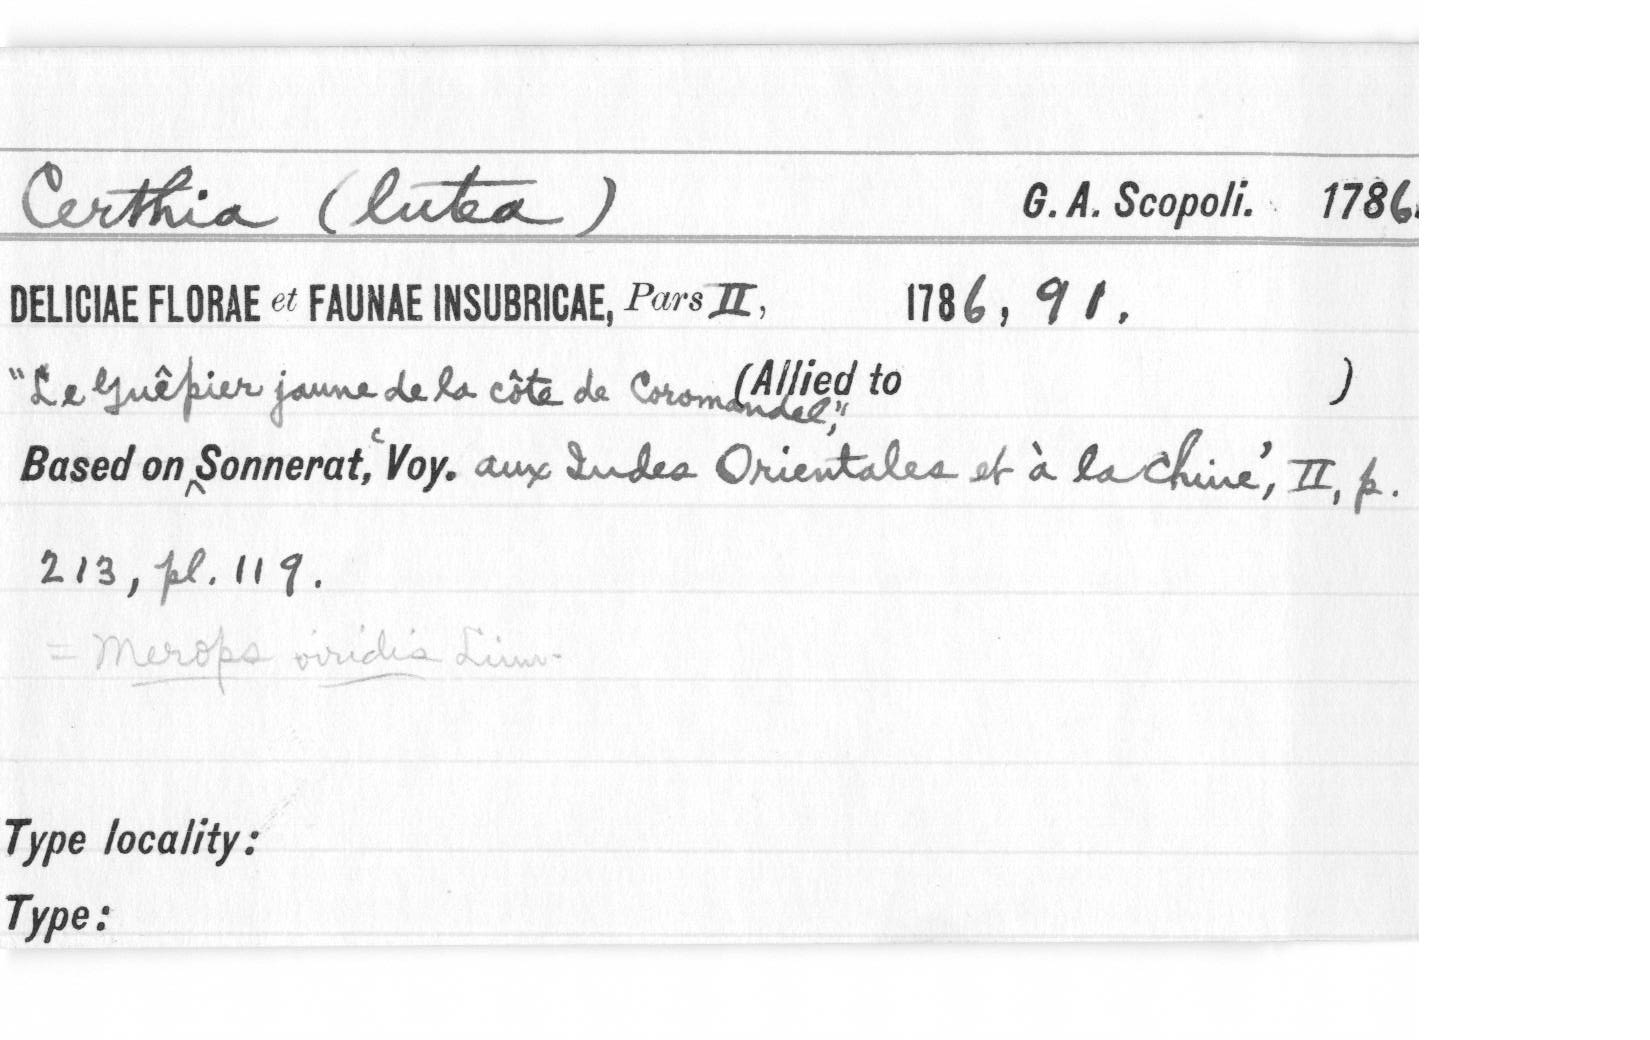 Certhia (lutea) G. A. Scopoli. 1786.
DELICIAE FLORAE et FAUNAE INSUBRICAE, Pars II, 1786, 91.
"Le Guêpier jaune de la côte de Coromandel," (Allied to )
Based on ‸ Sonnerat, 'Voy. aux Indes Orientales et à la Chine', II, p.
213, pl. 119.
= Merops viridis Linn.
Type locality:
Type: